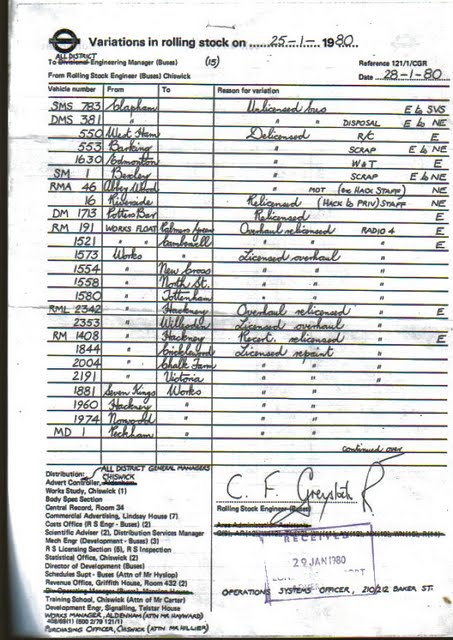 Variations in rolling stock on 25-1-1980
ALL DISTRICT (15)
To Divisional Engineering Manager (Buses) Reference 121/1/CGR
From Rolling Stock Engineer (Buses) Chiswick Date 28-1-80
Vehicle number From To Reason for variation
SMS 783 Clapham Unlicensed bus E to SVS
DMS 381 " " DISPOSAL E to NE
550 West Ham Delicensed R/C E
553 Barking " SCRAP E to NE
1630 Edmonton " W&T E
SM 1 Bexley " SCRAP E to NE
RMA 46 Abbey Wood " MOT (ex HACK STAFF) NE
16 Riverside Relicensed (HACK to PRIV) STAFF NE
DM 1713 Potters Bar Relicensed E
RM 191 WORKS FLOAT Palmers Green Overhaul relicensed RADIO 4 E
1521 " " Camberwell " " " E
1573 Works " Licensed overhaul "
1554 " New Cross " " "
1558 " North St. " " "
1580 " Tottenham " " "
RML 2342 " Hackney Overhaul relicensed " E
2353 " Willesden Licensed overhaul "
RM 1408 " Hackney Recert. relicensed " E
1844 " Cricklewood Licensed repaint "
2004 " Chalk Farm " " "
2191 " Victoria " " "
1881 Seven Kings Works " "
1960 Hackney " " "
1974 Norwood " " "
MD 1 Peckham " "
continued over
Distribution: ALL DISTRICT GENERAL MANAGERS
CHISWICK
Advert Controller, Aldenham
Works Study, Chiswick (1)
Body Spec Section
Central Record, Room 34
Commercial Advertising, Lindsay House (7)
Costs Office (R S Engr - Buses) (2)
Scientific Adviser (2), Distribution Services Manager
Mech Engr (Development - Buses) (3)
R S Licensing Section (5), R S Inspection
Statistical Office, Chiswick (2)
Director of Development (Buses)
Schedules Supt - Buses (Attn of Mr Hyslop)
Revenue Office, Griffith House, Room 432 (2)
Div Operating Manager (Buses), Mansion House
Training School, Chiswick (Attn of Mr Carter)
Development Engr, Signalling, Telstar House
WORKS MANAGER, ALDENHAM (ATTN MR HAYWARD)
PURCHASING OFFICER, CHISWICK (ATTN MR HILLIER)
C. F. Greystock
Rolling Stock Engineer (Buses)
Area Administrative Assistants
RECEIVED
29 JAN 1980
OPERATIONS SYSTEMS OFFICER, 210/212 BAKER ST.